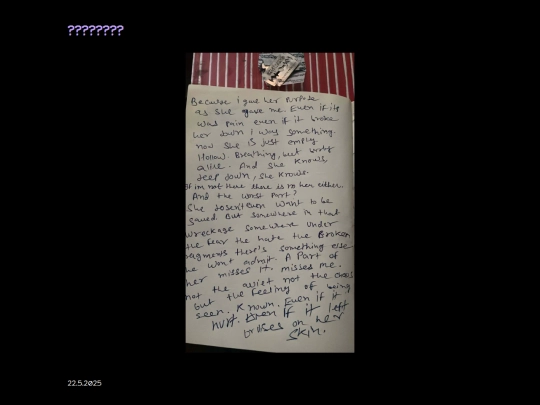 ????????
Because i gave her purpose
as she gave me. Even if it
was pain even if it broke
her down I was something.
now she is just empty
Hollow. Breathing, but barely
alive. And she knows,
deep down, she knows.
If im not there there is no her either.
And the worst part?
She doesn't even want to be
saved. But somewhere in that
wreckage somewhere under
the fear the hate the Broken
fragments there's something else
he won't admit. A part of
her misses it. misses me.
not the not the chaos
but the feeling of being
seen. Known. Even if it
hurt. Even If it left
bruises on her
skin.
22.5.2025